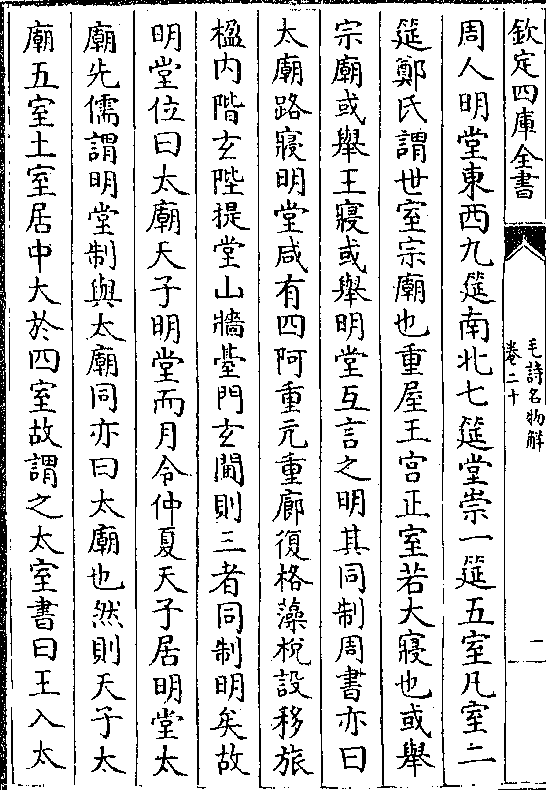 欽定四庫全書
毛詩名物解
卷二十
二
周人明堂東西九筵南北七筵堂崇一筵五室凡室二
筵鄭氏謂世室宗廟也重屋王宫正室若大寢也或舉
宗廟或舉王寢或舉明堂互言之明其同制周書亦曰
太廟路寢明堂咸有四阿重亢重廊復格藻梲設移旅
楹内階玄陛提堂山牆臺門玄閫則三者同制明矣故
明堂位曰太廟天子明堂而月令仲夏天子居明堂太
廟先儒謂明堂制與太廟同亦曰太廟也然則天子太
廟五室土室居中大於四室故謂之太室書曰王入太